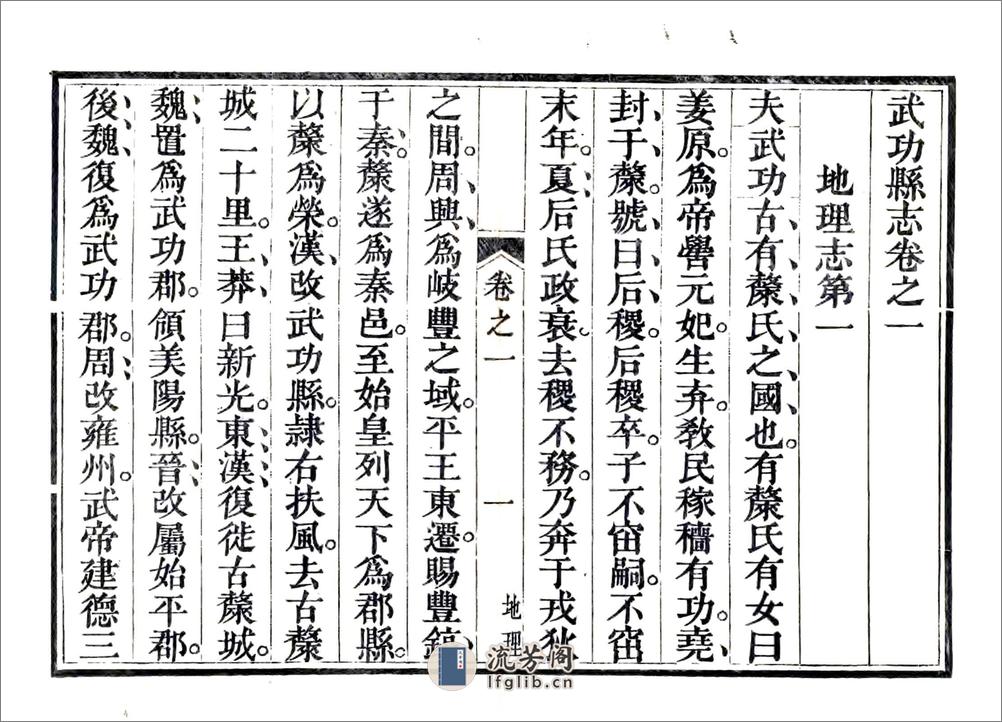 武功縣志卷之一
地理志第一
夫武功古有斄氏之國也。有斄氏有女曰
姜原。爲帝嚳元妃。生弃。敎民稼穡有功。堯、
封于斄。號曰后稷。后稷卒。子不窋嗣。不窋
末年。夏后氏政衰。去稷不務。乃奔于戎狄
卷之一
一
地理
之間。周興爲岐豐之域。平王東遷。賜豐鎬
于秦。斄遂爲秦邑。至始皇列天下爲郡縣。
以斄爲榮。漢改武功縣。隷右扶風。去古斄
城二十里。王莽曰新光。東漢復徙古斄城。
魏置爲武功郡。領美陽縣。晉改屬始平郡。
後魏復爲武功郡。周改雍州。武帝建德三
流芳閣
lfglib.cn